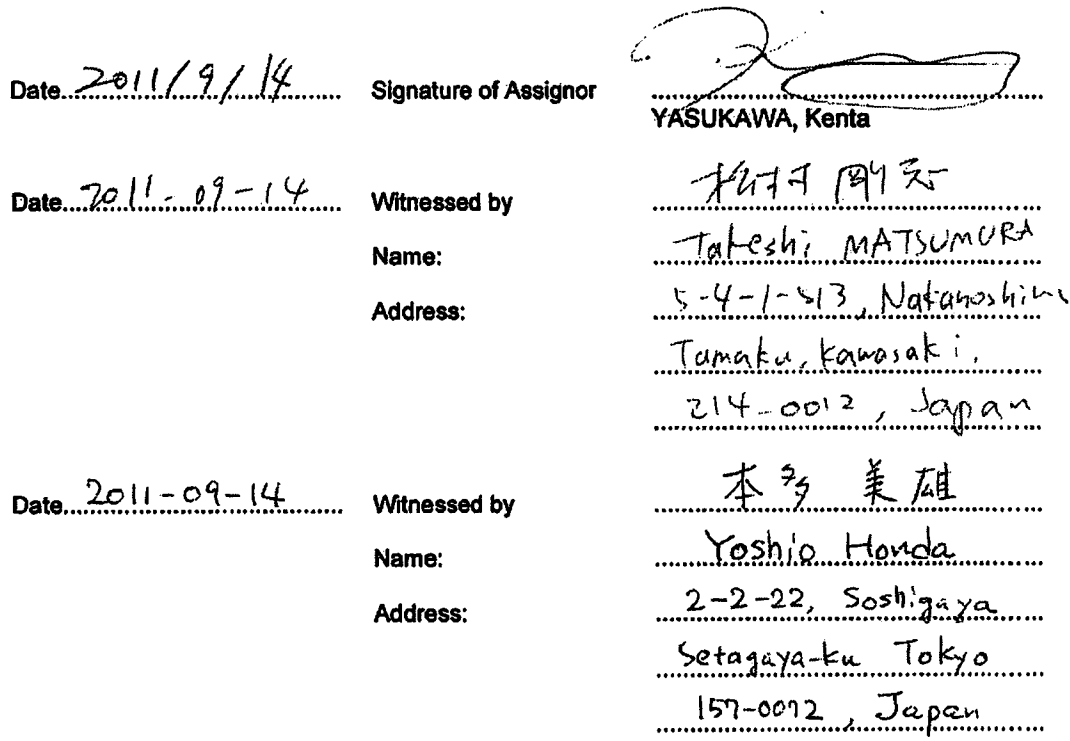 Date 2011/9/14 Signature of Assignor
YASUKAWA, Kenta
Date 2011-09-14 Witnessed by 松村 剛志
Name: Takeshi MATSUMURA
Address: 5-4-1-513, Nakanoshima
Tamaku, Kawasaki,
214-0012, Japan
Date 2011-09-14 Witnessed by 本多 美雄
Name: Yoshio Honda
Address: 2-2-22, Soshigaya
Setagaya-ku Tokyo
157-0072, Japan